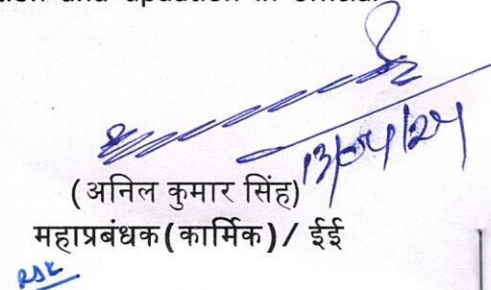 and updation in official
13/04/24
(अनिल कुमार सिंह)
महाप्रबंधक(कार्मिक)/ ईई